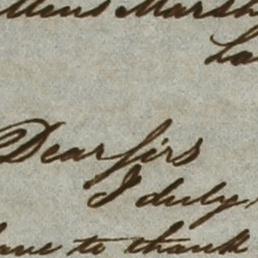 Marsh
Dear Sirs
I duly
to thank